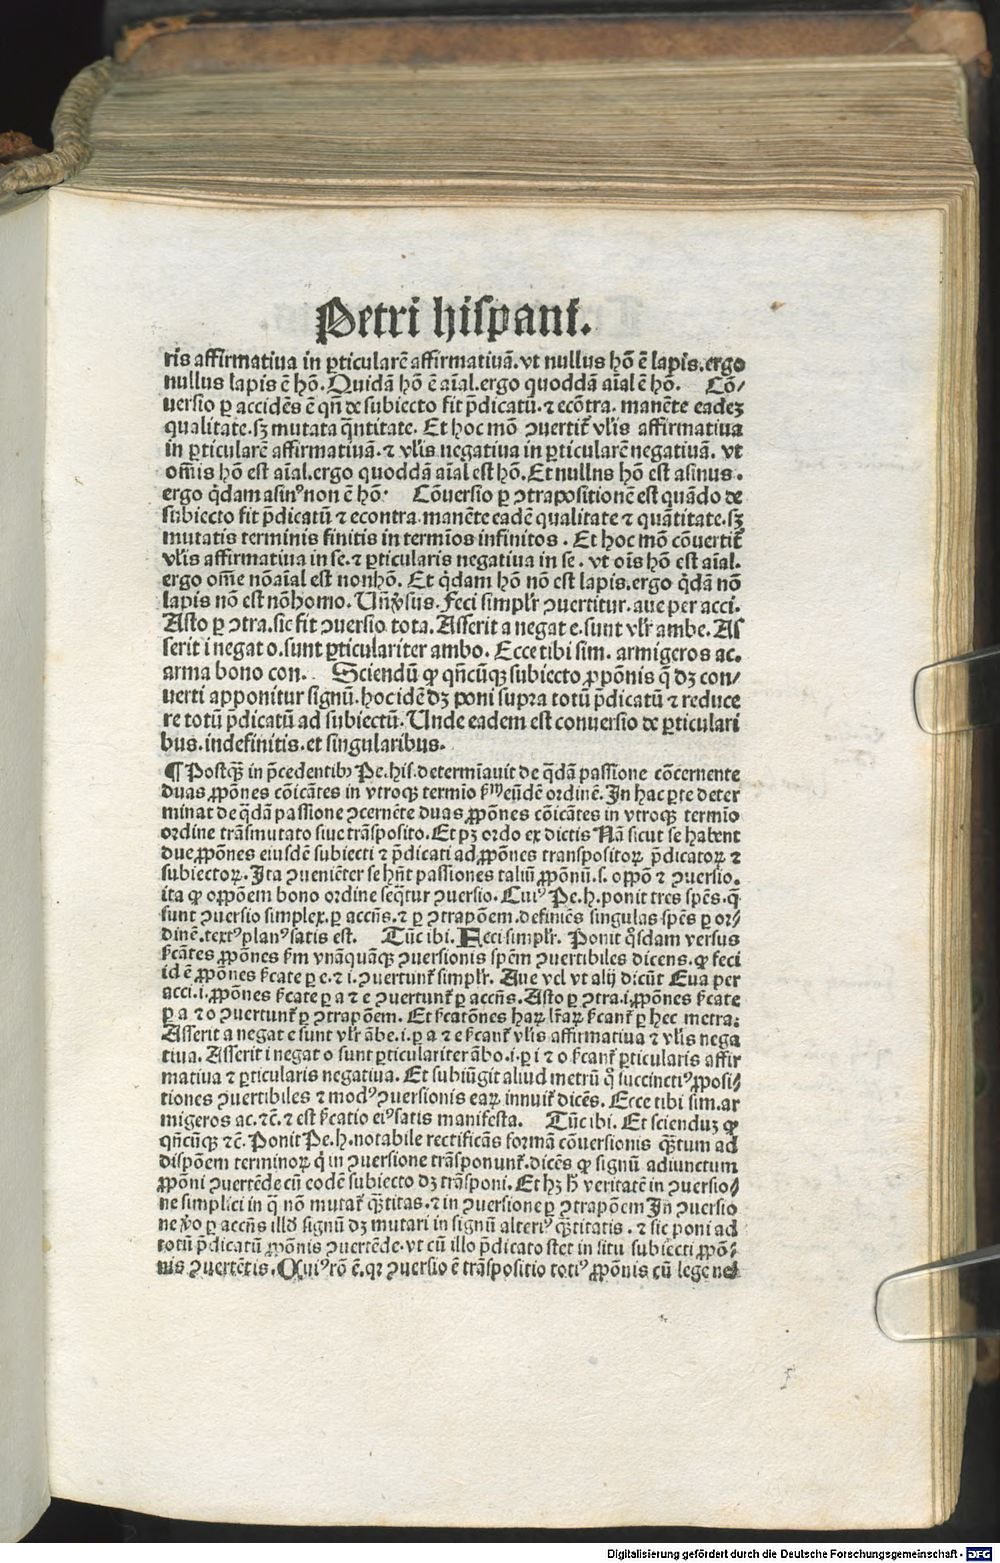 Petri hispani.
ris affirmatiua in ꝑticularē affirmatiuā. vt nullus hō ē lapis. ergo
nullus lapis ē hō. Quidā hō ē aīal. ergo quoddā aīal ē hō. Cō/
uersio ꝑ accidēs ē qn̄ de subiecto fit p̄dicatū. ⁊ ecōtra. manēte eadeꝫ
qualitate. sꝫ mutata q̄ntitate. Et hoc mō ꝯuertit᷑ vl̄is affirmatiua
in ꝑticularē affirmatiuā. ⁊ vl̄is negatiua in ꝑticularē negatiuā. vt
om̄is hō est aīal. ergo quoddā aīal est hō. Et nullns hō est asinus.
ergo q̇dam asinꝰ non ē hō. Cōuersio ꝑ ꝯtrapositionē est quādo de
subiecto fit p̄dicatū ⁊ econtra. manēte eadē qualitate ⁊ quātitate. sꝫ
mutatis terminis finitis in termīos infinitos. Et hoc mō cōuertit᷑
vl̄is affirmatiua in se. ⁊ ꝑticularis negatiua in se. vt oīs hō est aīal.
ergo om̄e nōaīal est nonhō. Et q̇dam hō nō est lapis. ergo q̇dā nō
lapis nō est nōhomo. Un̄ v̓sus. Feci simpl̄r ꝯuertitur. aue per acci.
Asto ꝑ ꝯtra. sic fit ꝯuersio tota. Asserit a negat e. sunt vl̄r ambe. As
serit i negat o. sunt ꝑticulariter ambo. Ecce tibi sim. armigeros ac.
arma bono con. Sciendū ꝙ qn̄cūqꝫ subiecto ꝓpōnis q̄ dꝫ con/
uerti apponitur signū. hoc idē dꝫ poni supra totū p̄dicatū ⁊ reduce
re totū p̄dicatū ad subiectū. Unde eadem est conuersio de ꝑticulari
bus. indefinitis. et singularibus.
¶ Postqꝫ̄ in p̄cedentibꝫ Pe. his. determīauit de q̄dā passione cōcernente
duas ꝓpōnes cōicātes in vtroqꝫ termīo eūdē ordinē. In hac ꝑte deter
minat de q̄dā passione ꝯcernēte duas ꝓpōnes cōicātes in vtroqꝫ termīo
ordine trāsmutato siue trāsposito. Et pꝫ ordo ex dictis Nā sicut se habent
due ꝓpōnes eiusdē subiecti ⁊ p̄dicati ad ꝓpōnes transpositoꝝ p̄dicatoꝝ ⁊
subiectoꝝ. Ita ꝯueniēter se hn̄t passiones taliū ꝓpōnū. s. oppō ⁊ ꝯuersio.
ita ꝙ oppōem bono ordine seq̄tur ꝯuersio. Cuiꝰ Pe. h. ponit tres spēs. q̄
sunt ꝯuersio simplex. ꝑ accn̄s. ⁊ ꝑ ꝯtrapōem. definiēs singulas spēs ꝑ or/
dinē. textꝰ planꝰ satis est. Tūc ibi. Feci simpl̄r. Ponit q̇sdam versus
ẜcātes ꝓpōnes ẜm vnāquāqꝫ ꝯuersionis spēm ꝯuertibiles dicens. ꝙ feci
id ē ꝓpōnes ẜcate ꝑ e. ⁊ i. ꝯuertunt᷑ simpl̄r. Aue vel vt alij dicūt Eua per
acci. i. ꝓpōnes ẜcate ꝑ a ⁊ e ꝯuertunt᷑ ꝑ accn̄s. Asto ꝑ ꝯtra. i. ꝓpōnes ẜcate
ꝑ a ⁊ o ꝯuertunt᷑ ꝑ ꝯtrapōem. Et ẜcatōnes haꝝ lr̄aꝝ ẜcant᷑ ꝑ hec metra:
Asserit a negat e sunt vl̄r ābe. i. ꝑ a ⁊ e ẜcant᷑ vl̄is affirmatiua ⁊ vl̄is nega
tiua. Asserit i negat o sunt ꝑticulariter ābo. i. ꝑ i ⁊ o ẜcant᷑ ꝑticularis affir
matiua ⁊ ꝑticularis negatiua. Et subiūgit aliud metrū q̊ succinctiꝰ ꝓposi/
tiones ꝯuertibiles ⁊ modꝰ ꝯuersionis eaꝝ innuit᷑ dicēs. Ecce tibi sim. ar
migeros ac. ⁊c̄. ⁊ est ẜcatio eiꝰ satis manifesta. Tūc ibi. Et scienduꝫ ꝙ
qn̄cūqꝫ ⁊c̄. Ponit Pe. h. notabile rectificās formā cōuersionis qꝫ̄tum ad
dispōem terminoꝝ q̇ in ꝯuersione trāsponunt᷑. dicēs ꝙ signū adiunctum
ꝓpōni ꝯuertēde cū eodē subiecto dꝫ trāsponi. Et hꝫ h̄ veritatē in ꝯuersio/
ne simplici in q̄ nō mutat᷑ qꝫ̄titas. ⁊ in ꝯuersione ꝑ ꝯtrapōem In ꝯuersio
ne v̓o ꝑ accn̄s illd̄ signū dꝫ mutari in signū alteriꝰ qꝫ̄titatis. ⁊ sic poni ad
totū p̄dicatū ꝓpōnis ꝯuertēde. vt cū illo p̄dicato stet in situ subiecti ꝓpō/
nis ꝯuertētis. Cuiꝰ rō ē. qꝛ ꝯuersio ē trāspositio totiꝰ ꝓpōnis cū lege ne/
Digitalisierung gefördert durch die Deutsche Forschungsgemeinschaft - DFG